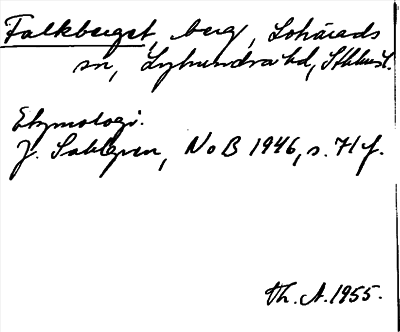 Falkberget, berg, Lohärads
sn, Lyhundra hd, Sthlms l.
Etymologi.
J. Sahlgren, NoB 1946, s. 71 f.
Th. A. 1955.